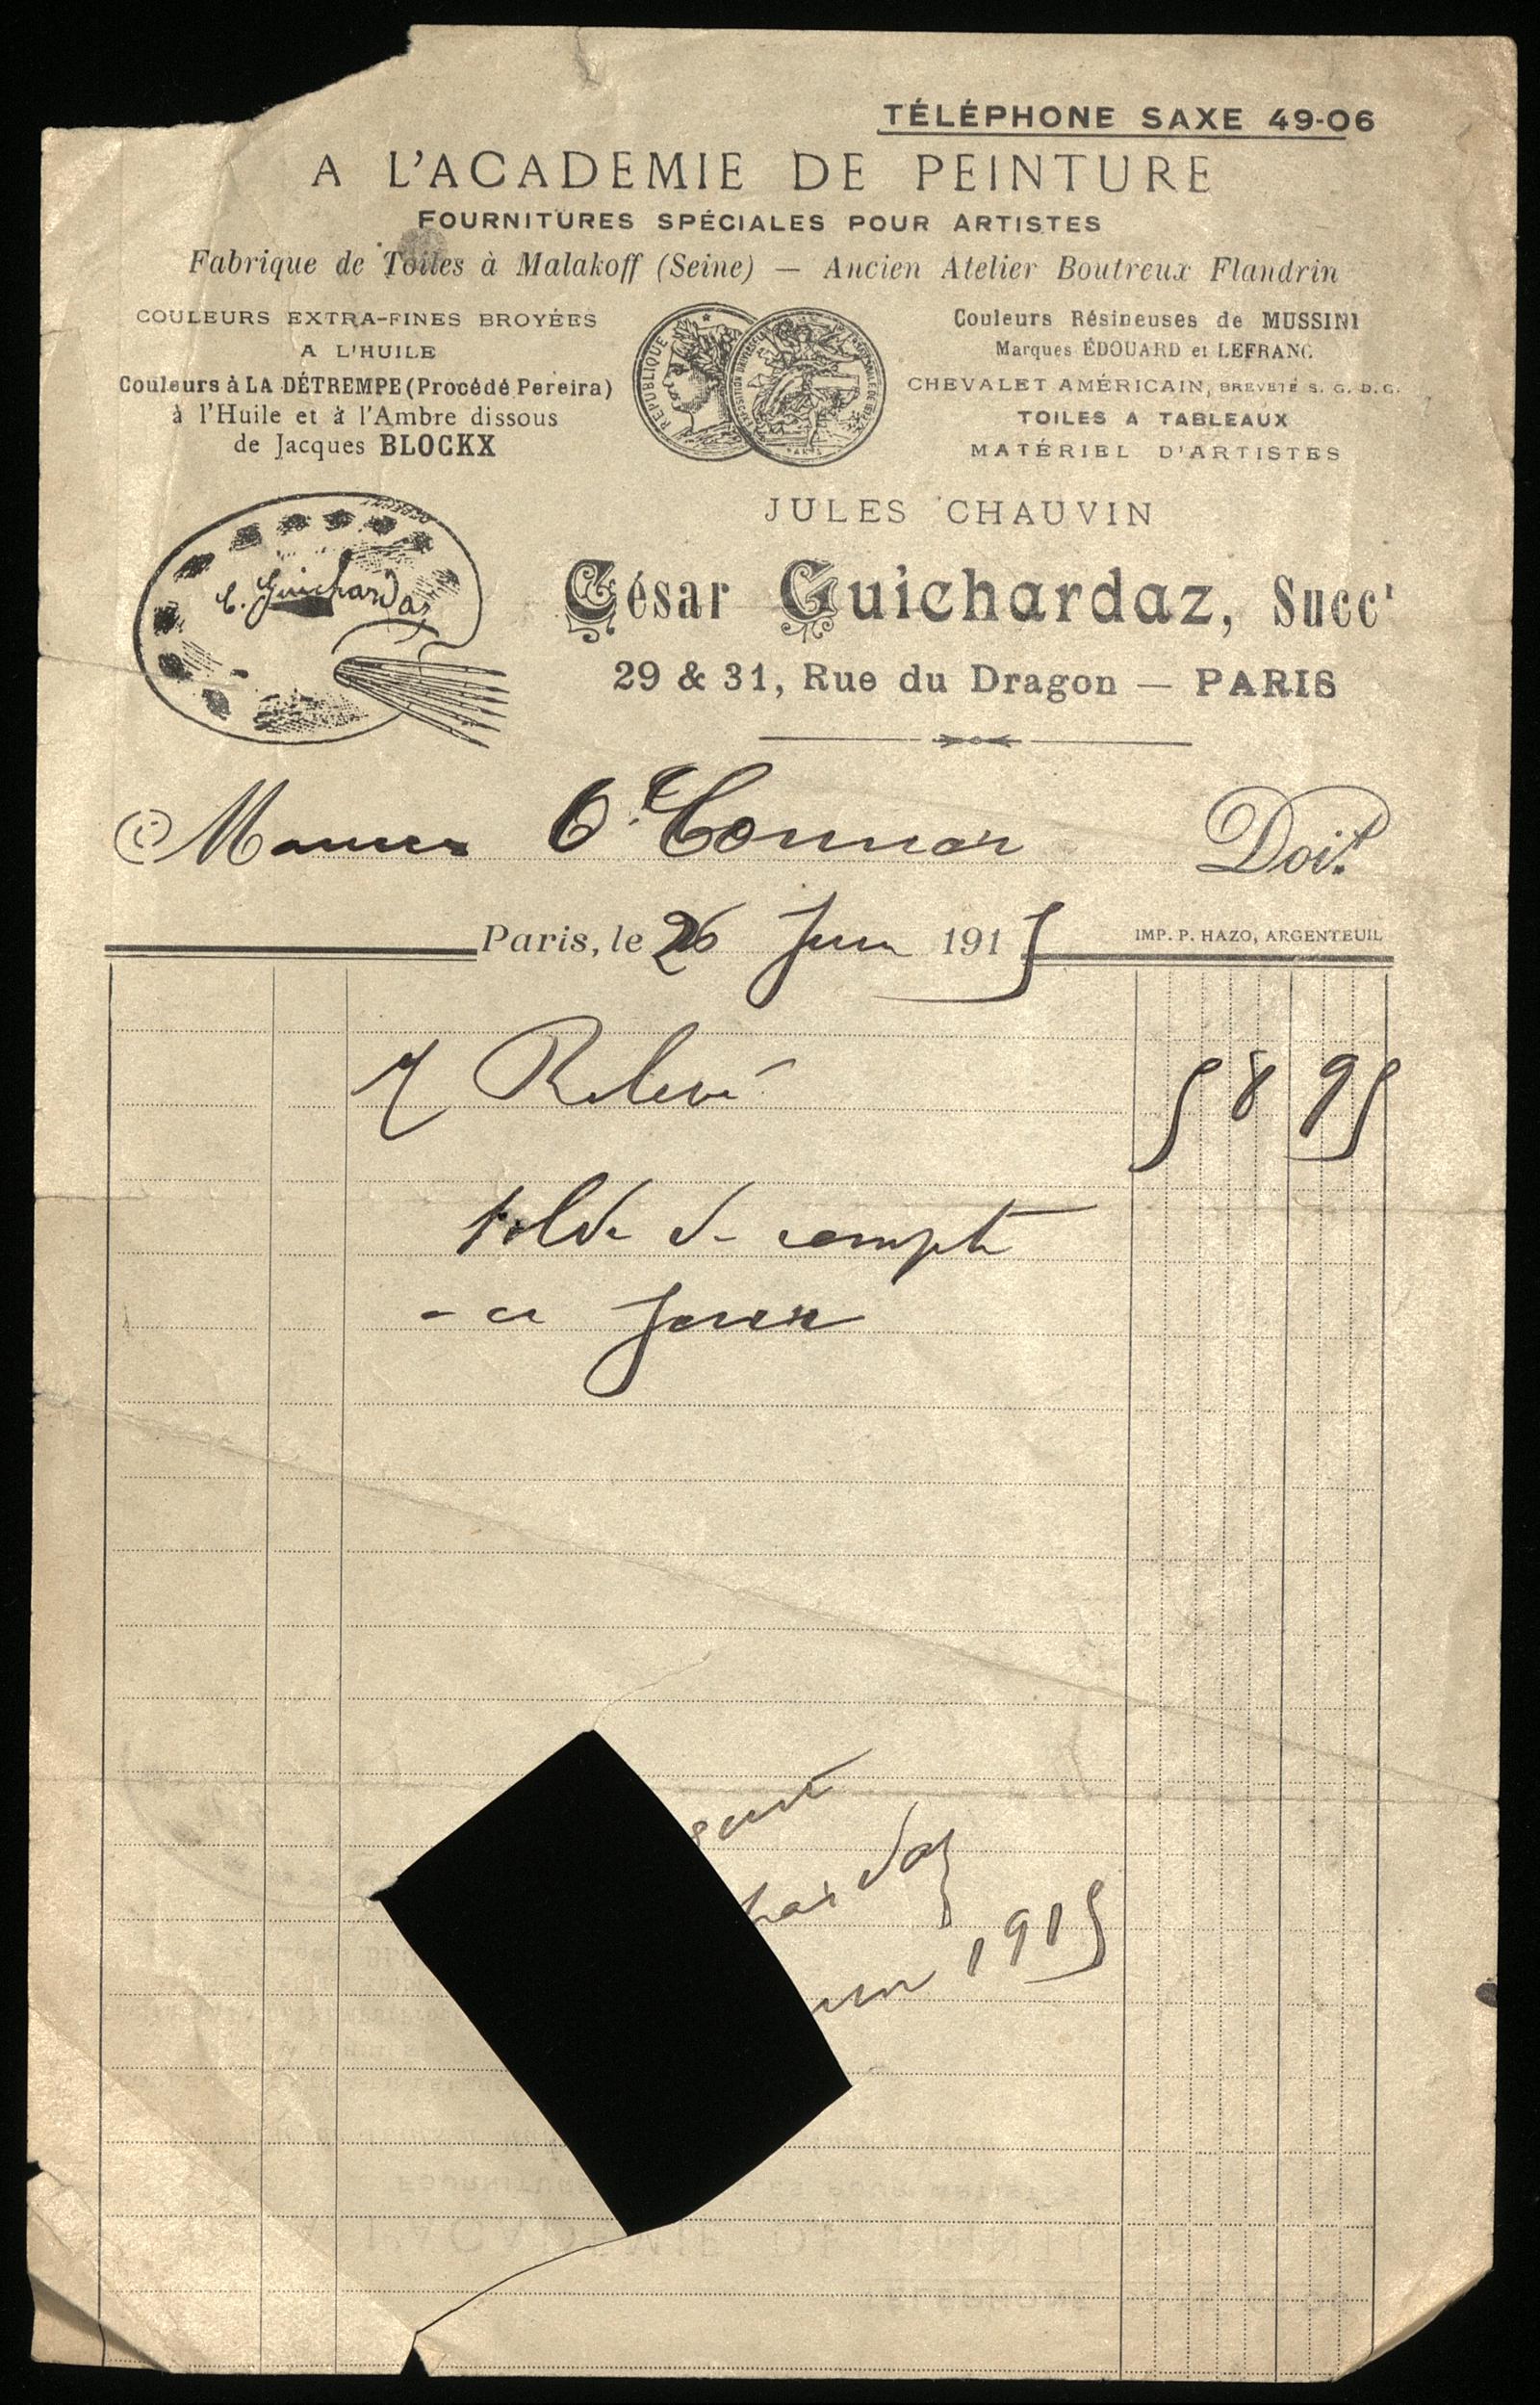 TÉLÉPHONE SAXE 49-06
A L'ACADEMIE DE PEINTURE
FOURNITURES SPÉCIALES POUR ARTISTES
Fabrique de Toiles à Malakoff (Seine) — Ancien Atelier Boutreux Flandrin
COULEURS EXTRA-FINES BROYÉES
A L'HUILE
Couleurs à LA DÉTREMPE (Procédé Pereira)
à l'Huile et à l'Ambre dissous
de Jacques BLOCKX
RÉPUBLIQUE
Couleurs Résineuses de MUSSINI
Marques ÉDOUARD et LEFRANC
CHEVALET AMÉRICAIN, BREVETÉ S. G. D. G.
TOILES A TABLEAUX
MATÉRIEL D'ARTISTES
C. Guichardaz
JULES CHAUVIN
César Guichardaz, Succr
29 & 31, Rue du Dragon — PARIS
O'Connor Doit
Paris, le 26 Juin 1915
IMP. P. HAZO, ARGENTEUIL
Relevé 58 95
solde de compte
ce jour
hardaz
uin 1915